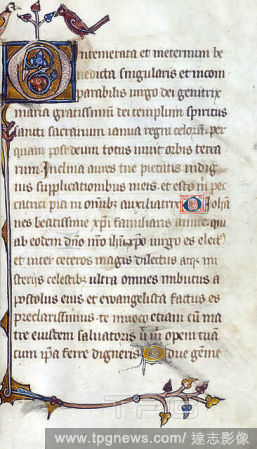 O intemerata et ineternum be
nedicta singularis et incom
parabilis uirgo dei genitrix
maria gratissimum dei templum spiritus
sancti sacrarium ianua regni celorum per
quam post deum totus uiuit orbis terra
rum Inclina aures tue pietatis indig
nis supplicationibus meis et esto m pec
catrici pia in omnib auxiliatrix O Joha
nes beatissime xpi familiaris amice qui
ab eodem dno nro ihu xpo uirgo es elect
et inter ceteros magis dilectus atq mi
sterijs celestib ultra omnes imbutus a
postolus eius et ewangelista factus es
preclarissimus te inuoco etiam cum ma
tre eiusdem saluatoris ut m opem tuam
cum ipsa ferre digneris O due gemme
TPG
www.tpgnews.com/達志影像